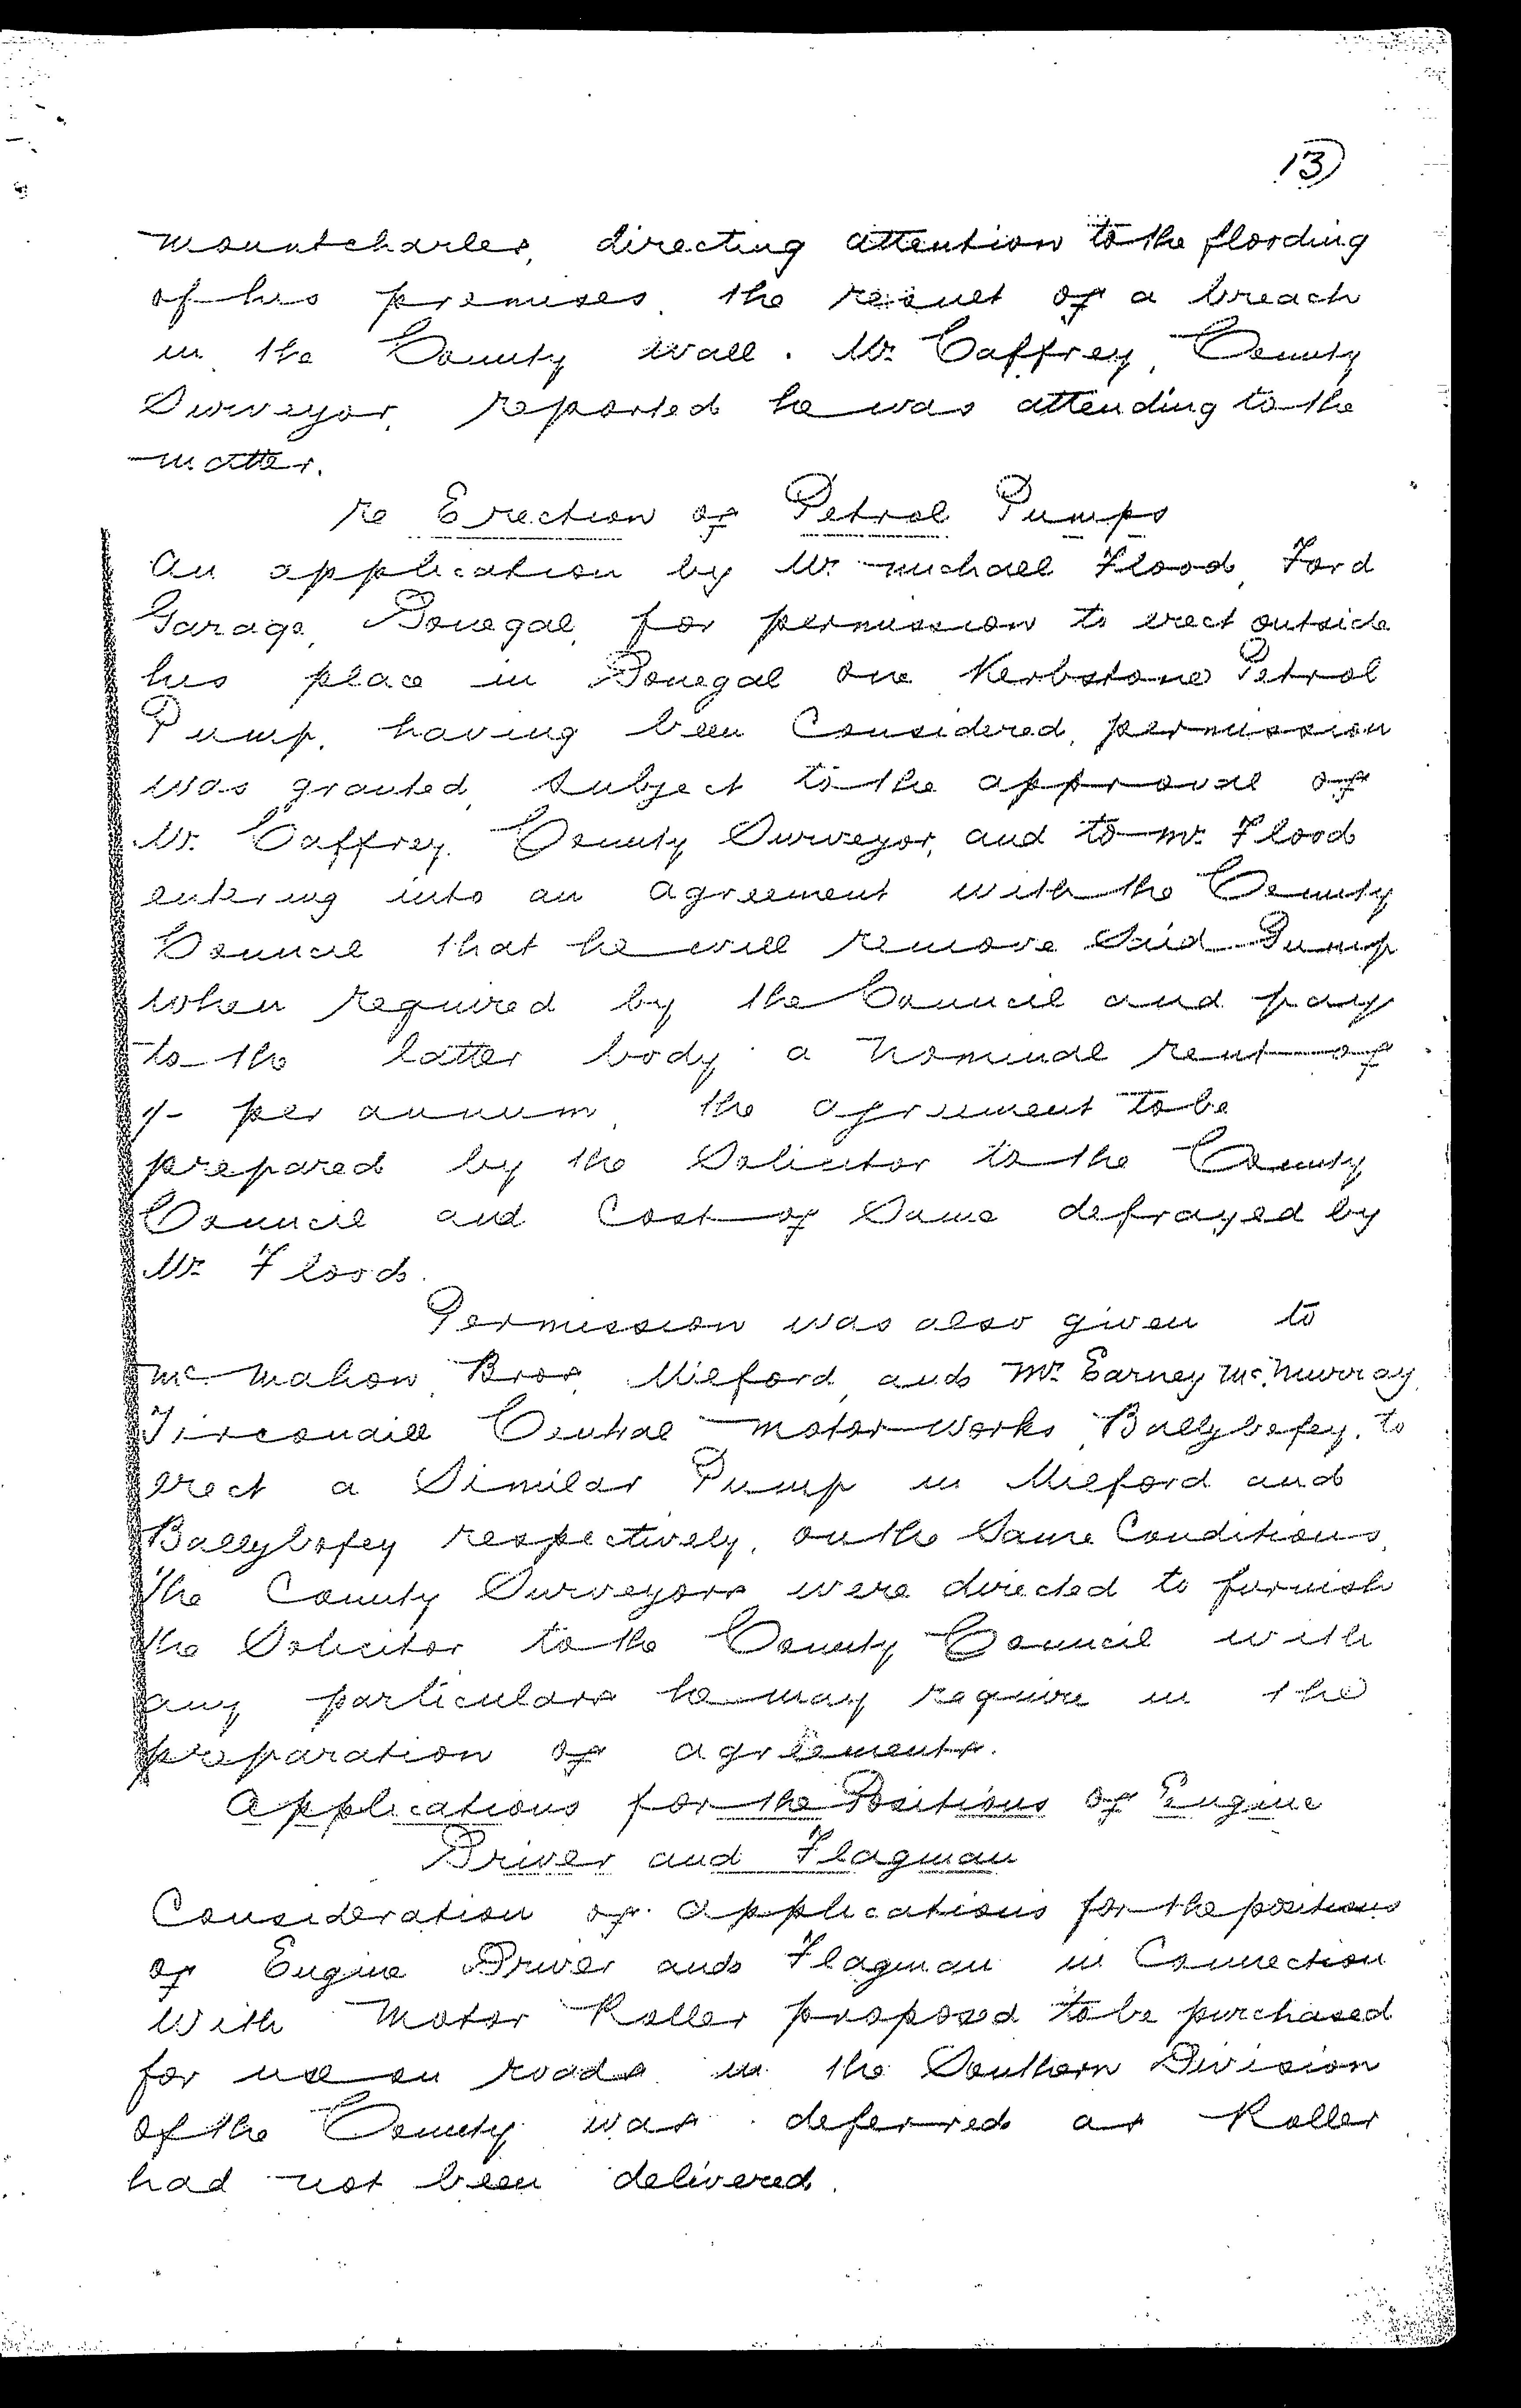 13)
Mountcharles, directing attention to the flooding
of his premises, the result of a breach
in the County wall. Mr. Caffrey, County
Surveyor, reported he was attending to the
matter.
re Erection of Petrol Pumps
An application by Mr. Michael Flood, Ford
Garage, Donegal, for permission to erect outside
his place in Donegal one Kerbstone Petrol
Pump, having been Considered, permission
was granted, subject to the approval of
Mr. Caffrey, County Surveyor, and to Mr. Flood
entering into an agreement with the County
Council that he will remove Said Pump
when required by the Council and pay
to the latter body a nominal rent of
1/- per annum, the agreement to be
prepared by the Solicitor to the County
Council and Cost of Same defrayed by
Mr. Flood.
Permission was also given to
McMahon Bros, Milford, and Mr. Barney McMurray,
Tirconaill Central Motor Works, Ballybofey, to
erect a Similar Pump in Milford and
Ballybofey respectively, on the Same Conditions.
The County Surveyors were directed to furnish
the Solicitor to the County Council with
any particulars he may require in the
preparation of agreements.
Applications for the Positions of Engine
Driver and Flagman
Consideration of applications for the positions
of Engine Driver and Flagman in Connection
with Motor Roller proposed to be purchased
for use on roads in the Southern Division
of the County was deferred as Roller
had not been delivered.